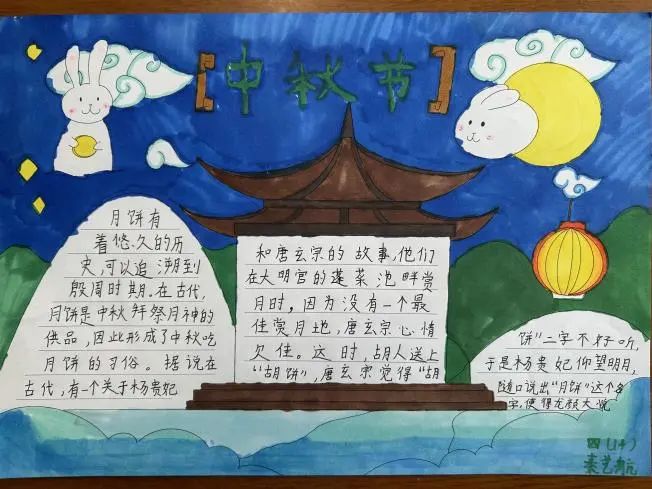 [中秋节]
月饼有
着悠.久的历
史,可以追溯到
殷周时期.在古代,
月饼是中秋拜祭月神的
供品,因此形成了中秋吃
月饼的习俗。据说在
古代,有一个关于杨贵妃
和唐玄宗的故事,他们
在大明宫的蓬莱池畔赏
月时,因为没有一个最
佳赏月地,唐玄宗心情
欠佳。这时,胡人送上
“胡饼”,唐玄宗觉得“胡
饼”二字不好听,
于是杨贵妃仰望明月,
随口说出“月饼”这个名
字,使得龙颜大悦
四(14)
艺航